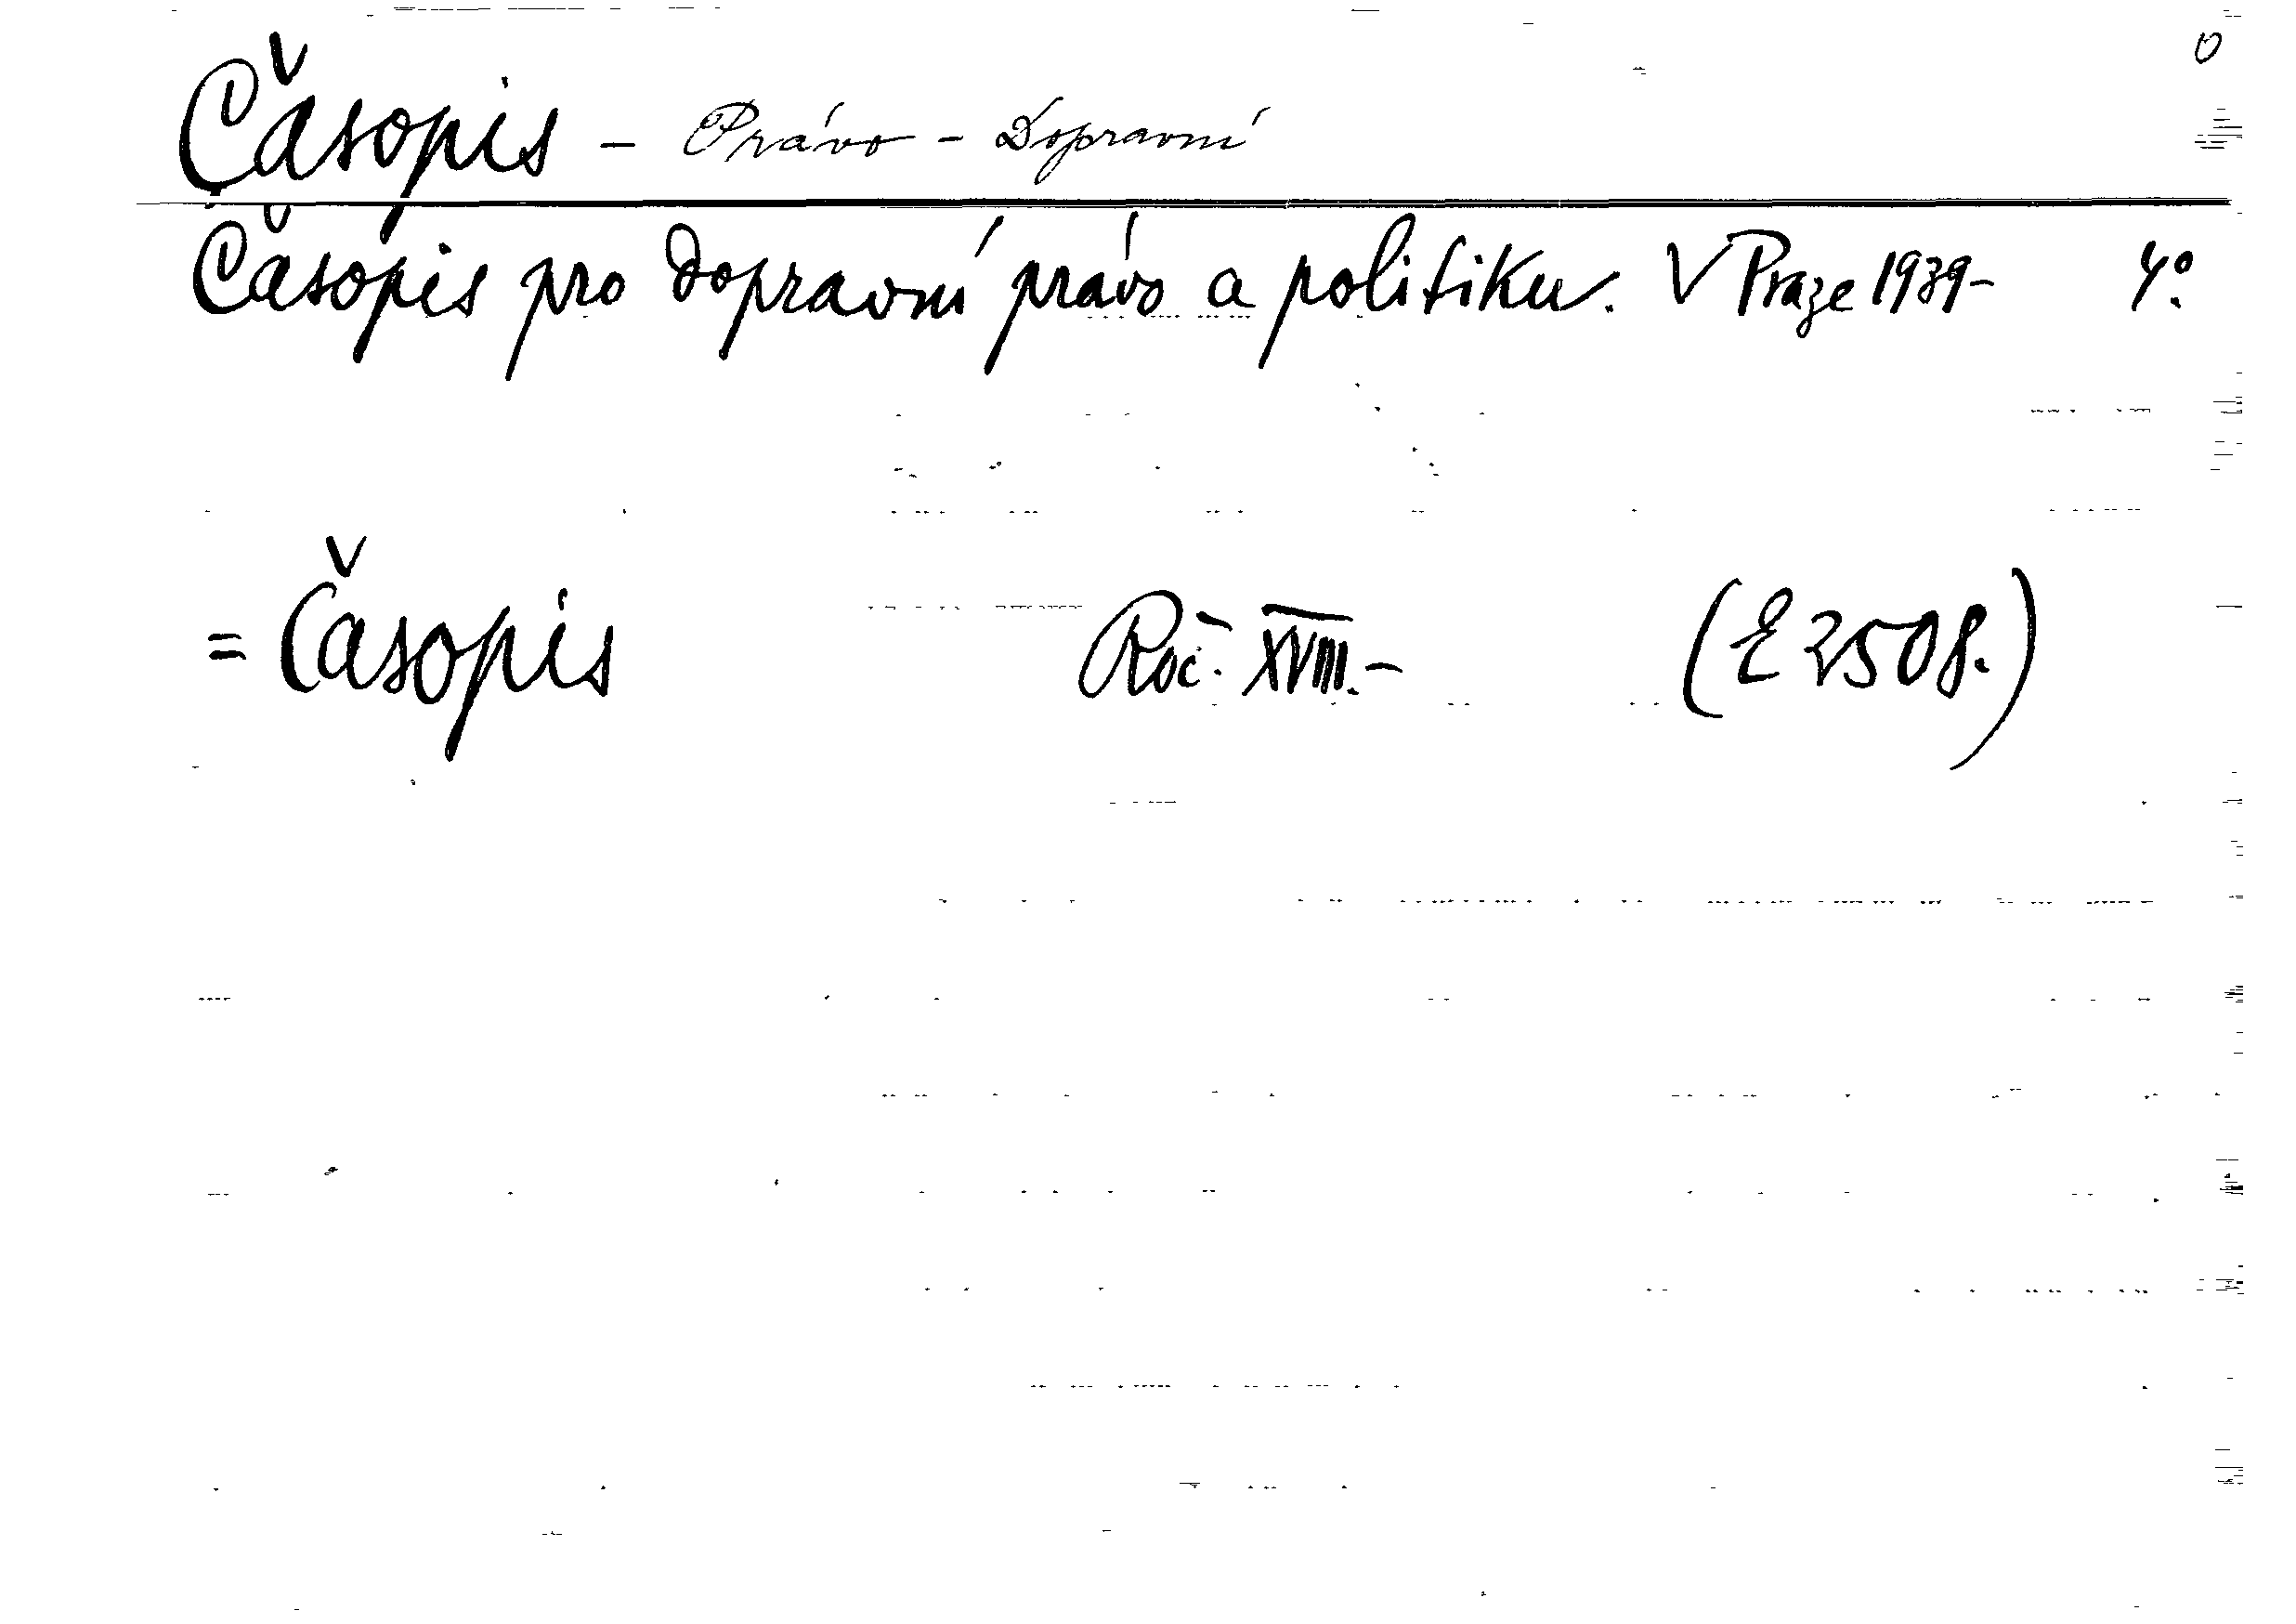 0
Časopis - Právo - Dopravní
Časopis pro dopravní právo a politiku. V Praze 1939- 4º.
= Časopis Roč. XVIII.- (E 2508.)